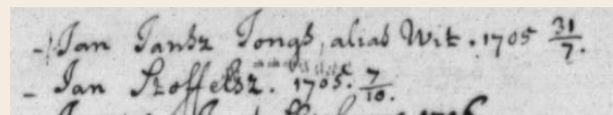 - Jan Jansz Jongh, alias Wit. 1705 31/7.
- Jan Stoffelsz. 1705. 7/10.